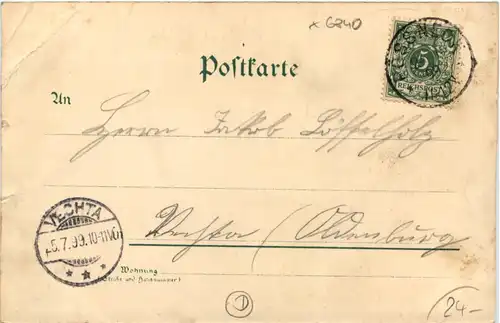 x 6240
Postkarte
5
An
Herrn Jakob Löffelholz
VECHTA
5.7.99.10-11V.
Vechta (Oldenburg)
Wohnung
(Straße und Hausnummer)
D
24-